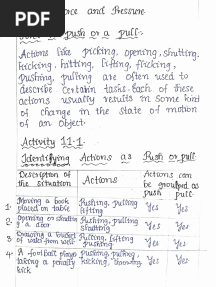 PDF
Force and Pressure
Force is push or a pull:-
Actions like picking, opening, shutting,
kicking, hitting, lifting, flicking,
pushing, pulling are often used to
describe certain tasks. Each of these
actions usually results in some kind
of change in the state of motion
of an object.
Activity 11.1
Identifying Actions as Push or pull
Description of the situation Actions Actions can be grouped as push pull
1. Moving a book placed on table Pushing, pulling lifting Yes Yes
2. Opening or shutting a door Pushing, pulling Yes Yes
3. Drawing a bucket of water from well Pulling, lifting Yes Yes
4. A football player taking a penalty kick Pushing, pulling kicking, Yes Yes